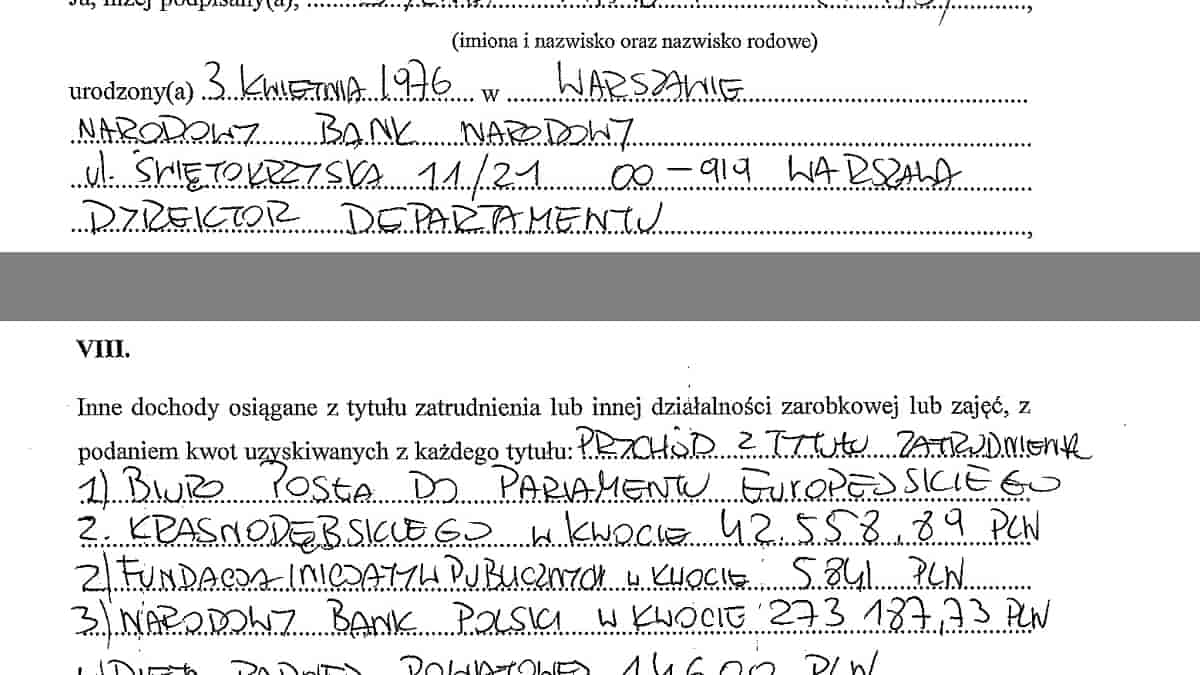 Ja, niżej podpisany(a),
(imiona i nazwisko oraz nazwisko rodowe)
urodzony(a) 3 KWIETNIA 1976 w WARSZAWIE
NARODOWY BANK NARODOWY
ul. ŚWIĘTOKRZYSKA 11/21 00-919 WARSZAWA
DYREKTOR DEPARTAMENTU
VIII.
Inne dochody osiągane z tytułu zatrudnienia lub innej działalności zarobkowej lub zajęć, z
podaniem kwot uzyskiwanych z każdego tytułu: PRZCHÓD Z TYTUŁU ZATRUDNIENIA
1) BIURO POSŁA DO PARLAMENTU EUROPEJSKIEGO
Z. KRASNODĘBSKIEGO W KWOCIE 42.558,89 PLN
2) FUNDACJA INICJATYW PUBLICZNYCH W KWOCIE 5841 PLN
3) NARODOWY BANK POLSKI W KWOCIE 273 187,73 PLN
DIETA RADNEJ POWIATOWEJ 14600 PLN